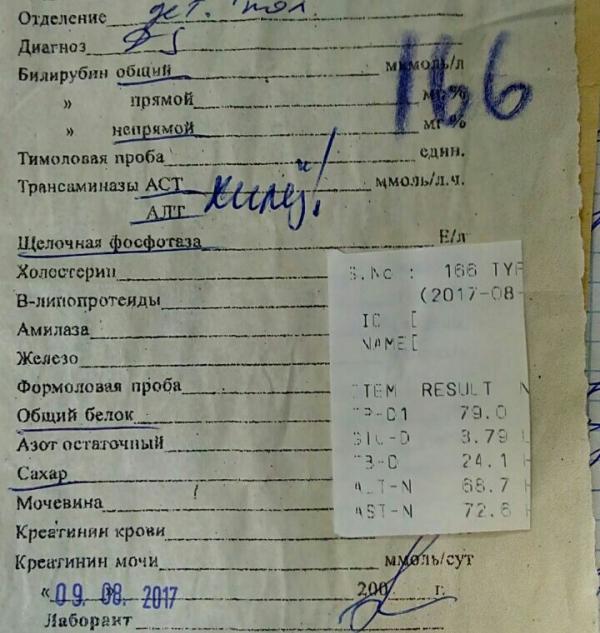 Отделение дет. пол.
Диагноз
Билирубин общий ммоль/л
» прямой мг %
» непрямой мг %
166
Тимоловая проба един.
Трансаминазы АСТ ммоль/л.ч.
АЛТ
Щелочная фосфотаза Е/л
Холестерин
В-липопротеиды
Амилаза
Железо
Формоловая проба
Общий белок
Азот остаточный
Сахар
Мочевина
Креатинин крови
Креатинин мочи ммоль/сут
« 09. 08. 2017 200 г.
Лаборант
S.No : 166 TYP
(2017-08-
ID [
NAME[
ITEM RESULT N
TP-01 79.0
GLC-D 3.79 L
TB-D 24.1 H
ALT-N 68.7 H
AST-N 72.6 H